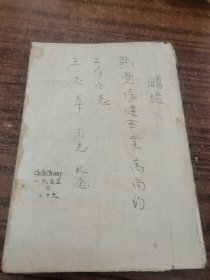 赠给
热爱保健事业高尚的
工作同志
王志华同志 纪念
一九五五
三
二十九